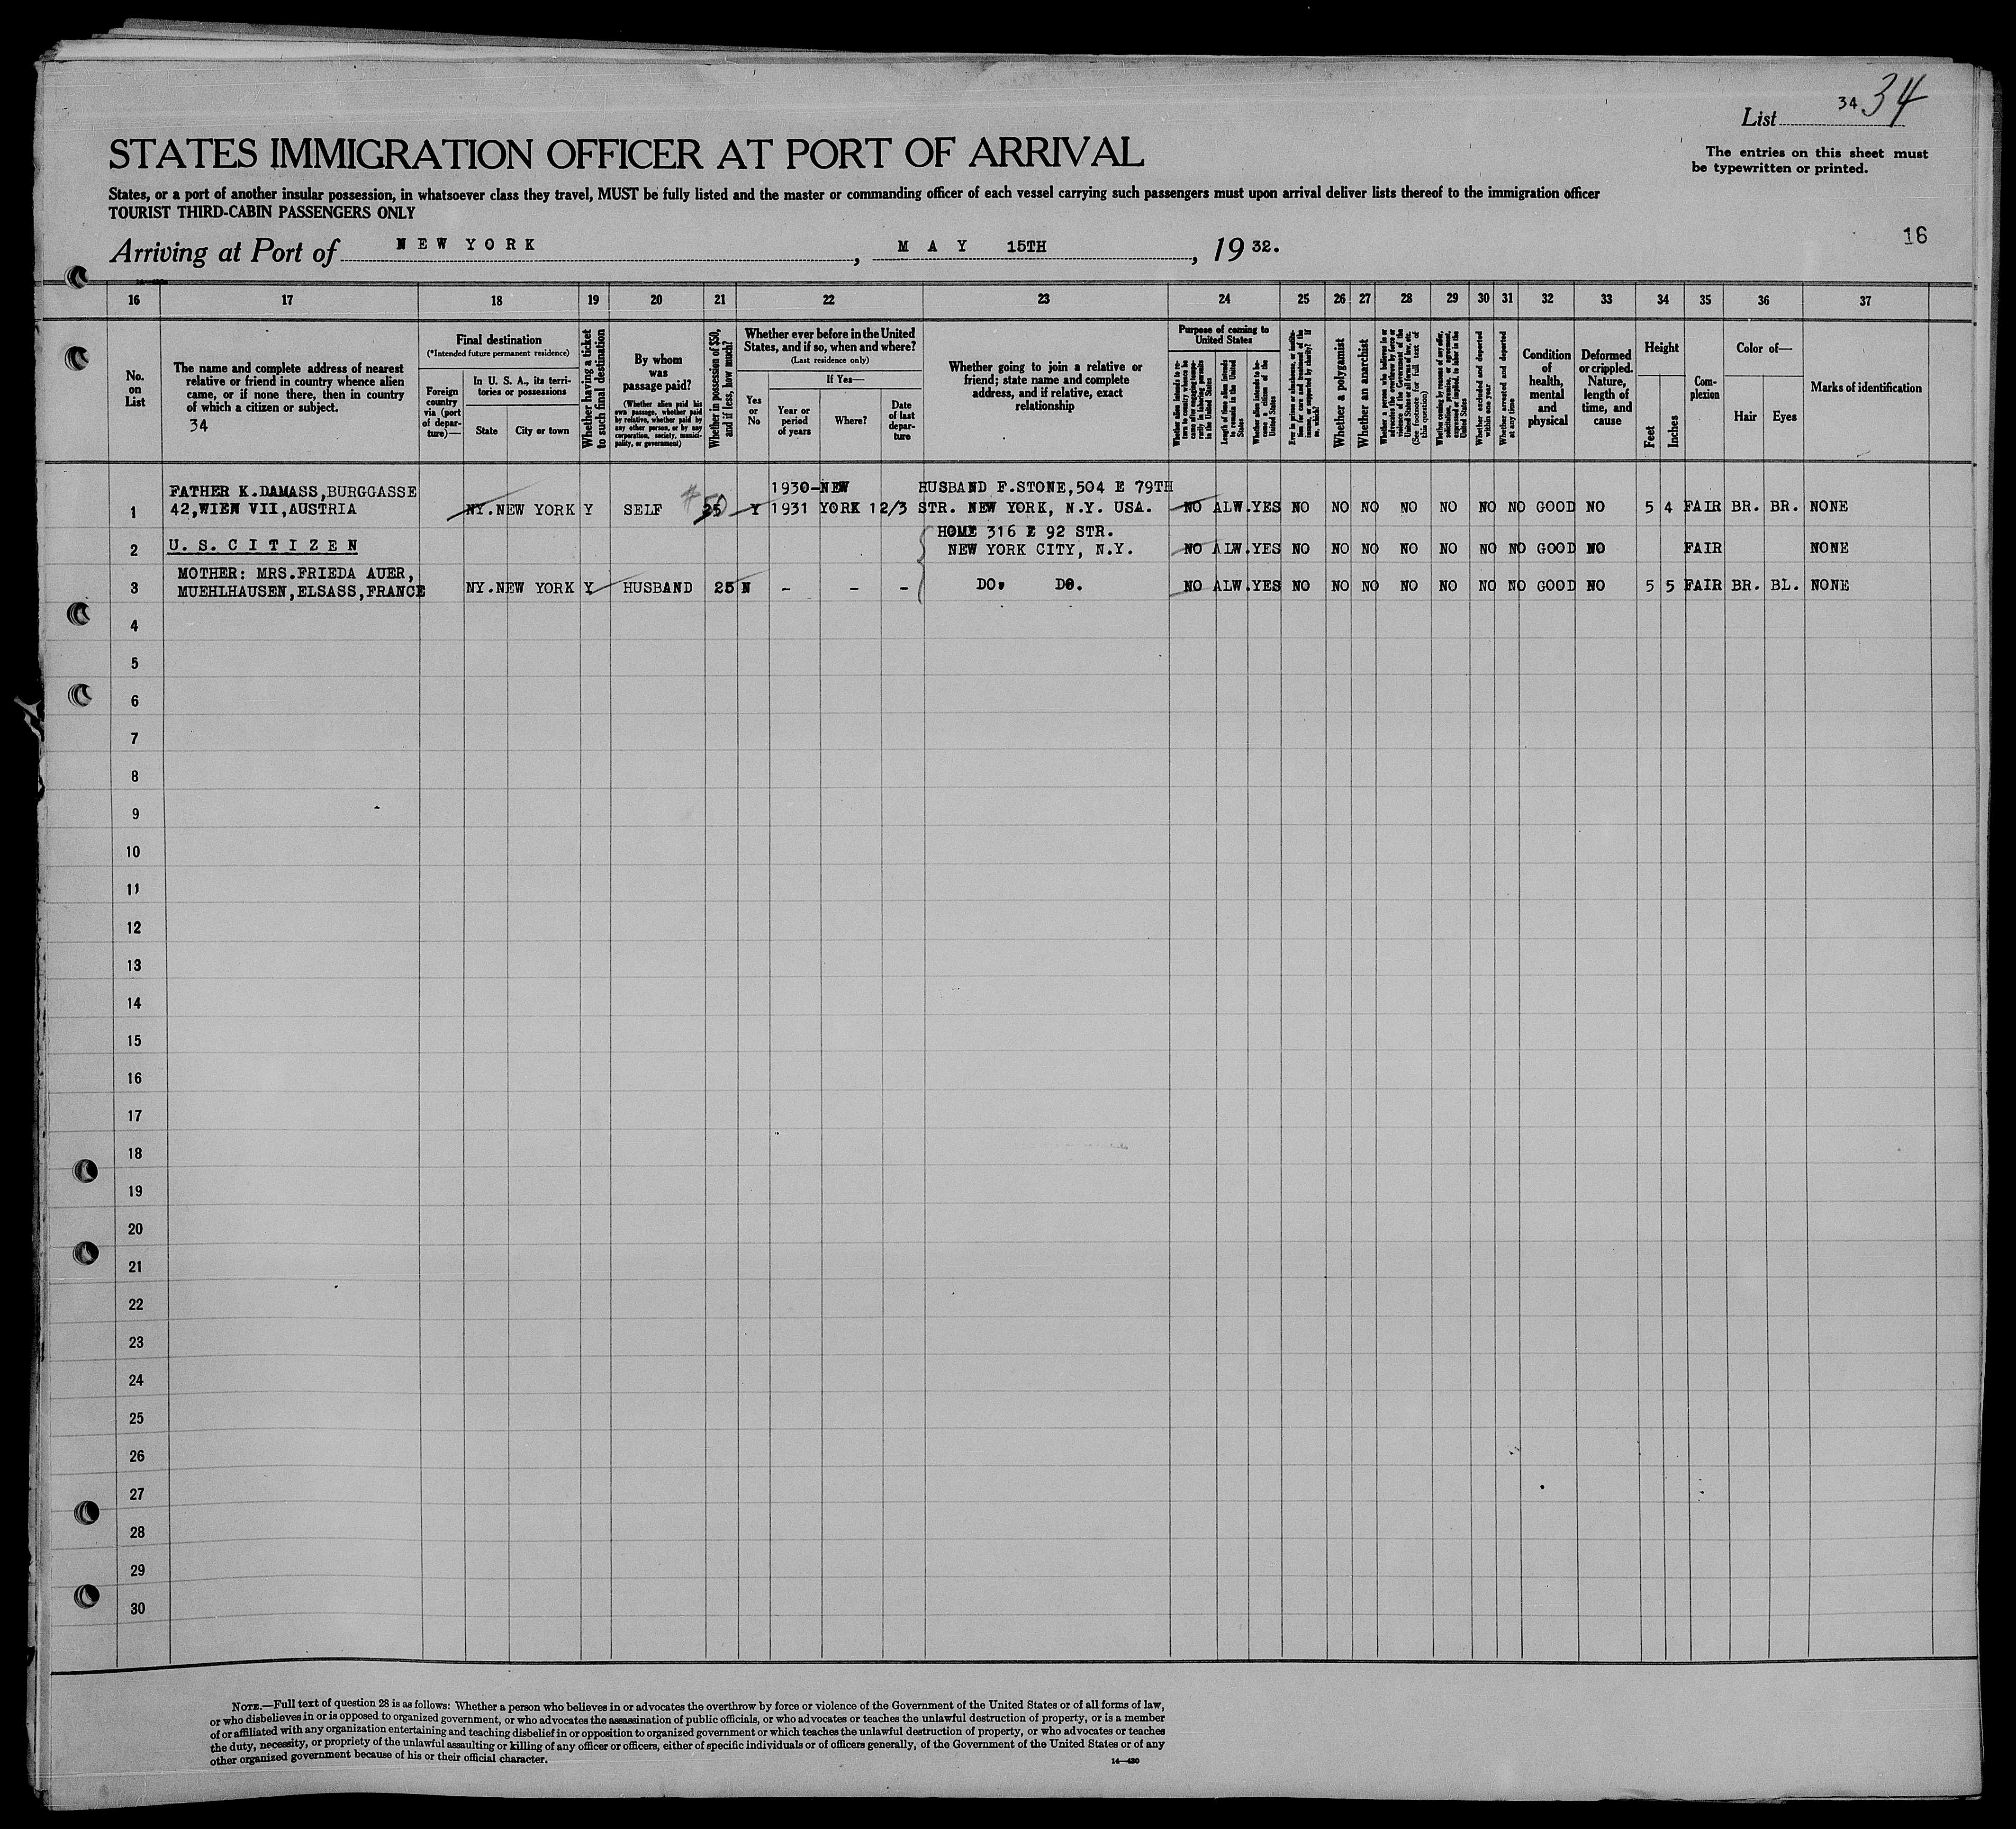 34 34
List
STATES IMMIGRATION OFFICER AT PORT OF ARRIVAL
The entries on this sheet must
be typewritten or printed.
States, or a port of another insular possession, in whatsoever class they travel, MUST be fully listed and the master or commanding officer of each vessel carrying such passengers must upon arrival deliver lists thereof to the immigration officer
TOURIST THIRD-CABIN PASSENGERS ONLY
16
Arriving at Port of NEW YORK, MAY 15TH, 19 32.
16 17 18 19 20 21 22 23 24 25 26 27 28 29 30 31 32 33 34 35 36 37
No.
on
List
The name and complete address of nearest
relative or friend in country whence alien
came, or if none there, then in country
of which a citizen or subject.
34
Final destination
(*Intended future permanent residence)
Foreign
country
via (port
of depar-
ture)—
In U. S. A., its terri-
tories or possessions
State
City or town
Whether having a ticket
to such final destination
By whom
was
passage paid?
(Whether alien paid his
own passage, whether paid
by relative, whether paid by
any other person, or by any
corporation, society, munici-
pality, or government)
Whether in possession of $50,
and if less, how much?
Whether ever before in the United
States, and if so, when and where?
(Last residence only)
Yes
or
No
If Yes—
Year or
period
of years
Where?
Date
of last
depar-
ture
Whether going to join a relative or
friend; state name and complete
address, and if relative, exact
relationship
Purpose of coming to
United States
Whether alien intends to re-
turn to country whence he
came after engaging tempo-
rarily in laboring pursuits
in the United States
Length of time alien intends
to remain in the United
States
Whether alien intends to be-
come a citizen of the
United States
Ever in prison or almshouse, or institu-
tion for care and treatment of the
insane, or supported by charity? If
so, which?
Whether a polygamist
Whether an anarchist
Whether a person who believes in or
advocates the overthrow by force or
violence of the Government of the
United States or all forms of law, etc.
(See footnote for full text of
this question)
Whether coming by reason of any offer,
solicitation, promise, or agreement,
expressed or implied, to labor in the
United States
Whether excluded and deported
within one year
Whether arrested and deported
at any time
Condition
of
health,
mental
and
physical
Deformed
or crippled.
Nature,
length of
time, and
cause
Height
Feet
Inches
Com-
plexion
Color of—
Hair
Eyes
Marks of identification
FATHER K.DAMASS,BURGGASSE 1930-NEW HUSBAND F.STONE,504 E 79TH
1 42,WIEN VII,AUSTRIA NY.NEW YORK Y SELF 25 $50 Y 1931 YORK 12/3 STR. NEW YORK, N.Y. USA. NO ALW.YES NO NO NO NO NO NO NO GOOD NO 5 4 FAIR BR. BR. NONE
HOME 316 E 92 STR.
2 U.S.CITIZEN NEW YORK CITY, N.Y. NO ALW.YES NO NO NO NO NO NO NO GOOD NO FAIR NONE
MOTHER: MRS.FRIEDA AUER,
3 MUEHLHAUSEN,ELSASS,FRANCE NY.NEW YORK Y HUSBAND 25 N - - - DO. DO. NO ALW.YES NO NO NO NO NO NO NO GOOD NO 5 5 FAIR BR. BL. NONE
4
5
6
7
8
9
10
11
12
13
14
15
16
17
18
19
20
21
22
23
24
25
26
27
28
29
30
NOTE.—Full text of question 28 is as follows: Whether a person who believes in or advocates the overthrow by force or violence of the Government of the United States or of all forms of law,
or who disbelieves in or is opposed to organized government, or who advocates the assassination of public officials, or who advocates or teaches the unlawful destruction of property, or is a member
of or affiliated with any organization entertaining and teaching disbelief in or opposition to organized government or which teaches the unlawful destruction of property, or who advocates or teaches
the duty, necessity, or propriety of the unlawful assaulting or killing of any officer or officers, either of specific individuals or of officers generally, of the Government of the United States or of any
other organized government because of his or their official character.
14—430